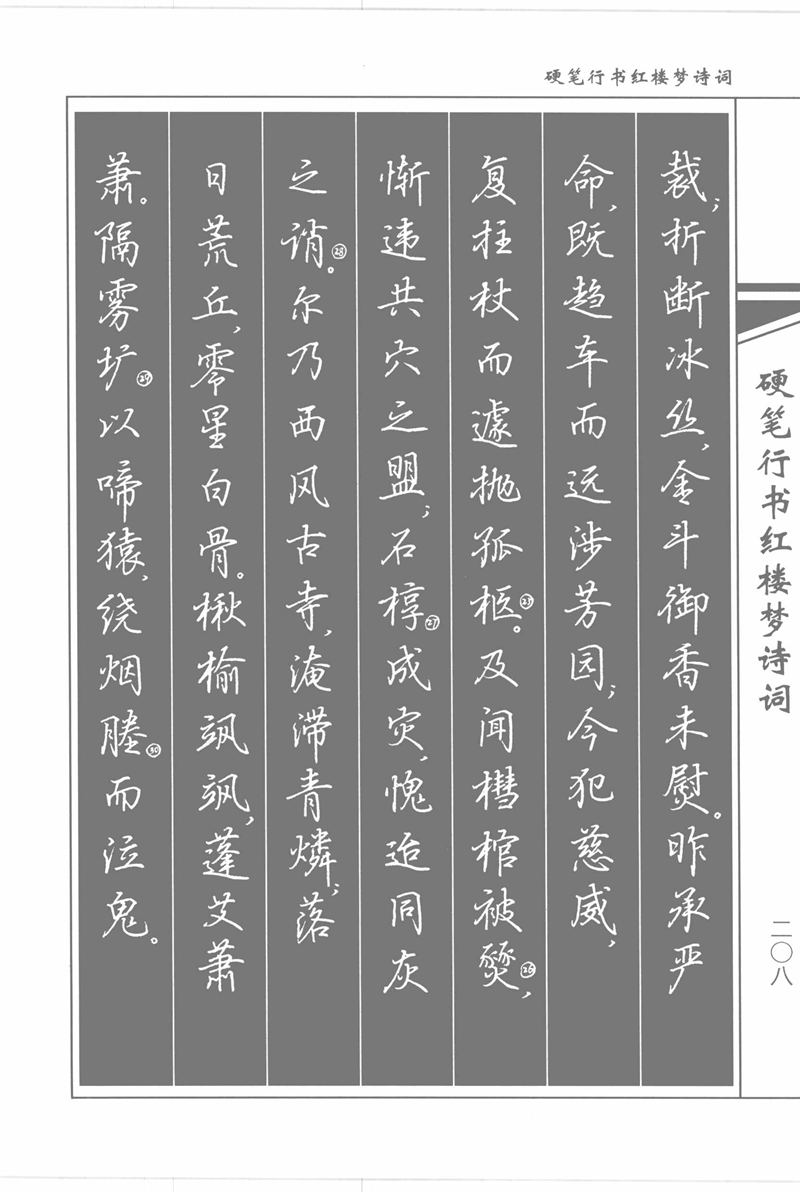 硬笔行书红楼梦诗词
裁；折断冰丝，金斗御香未熨。昨承严
命，既趋车而远涉芳园；今犯慈威，
复拄杖而遽抛孤柩㉕。及闻槥棺被燹㉖，
惭违共穴之盟；石椁㉗成灾，愧迨同灰
之诮㉘。尔乃西风古寺，淹滞青燐；落
日荒丘，零星白骨。楸榆飒飒，蓬艾萧
萧。隔雾圹㉙以啼猿，绕烟塍㉚而泣鬼。
硬笔行书红楼梦诗词
二〇八